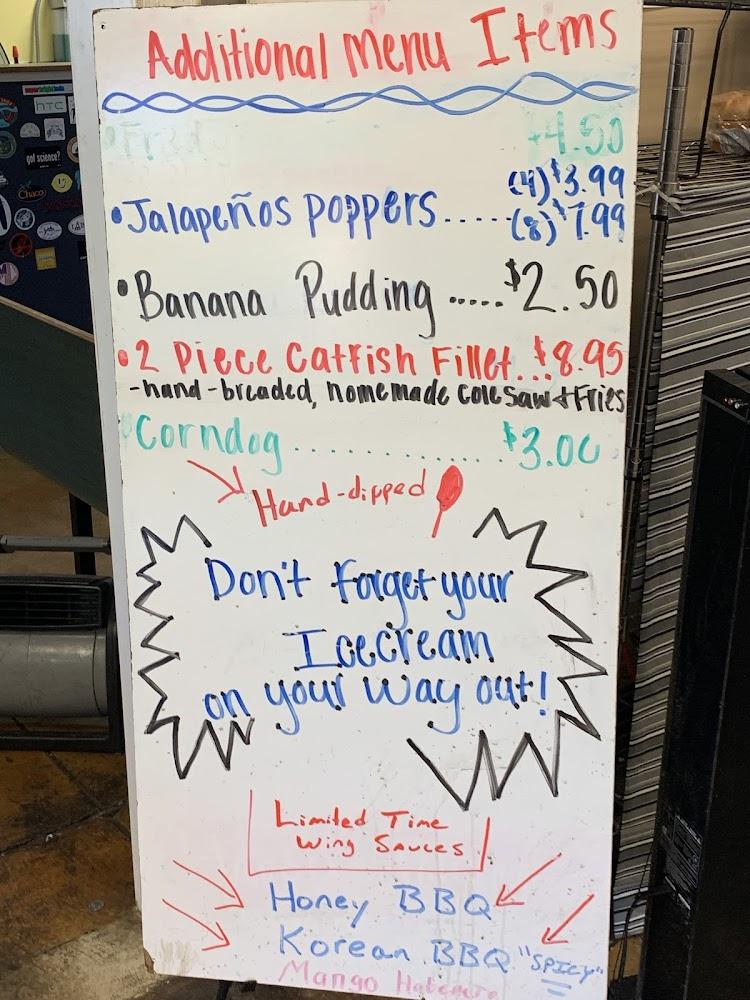 Additional Menu Items
$4.50
•Jalapeños poppers.....(4)$3.99
(8)$7.99
•Banana Pudding.....$2.50
•2 Piece Catfish Fillet...$8.95
-hand-breaded, homemade cole Saw + Fries
•Corndog..............$3.00
Hand-dipped
Don't forget your
Icecream
on your way out!
Limited Time
Wing Sauces
Honey BBQ
Korean BBQ "SPICY"
Mango Habenero
htc
got science?
Chaco